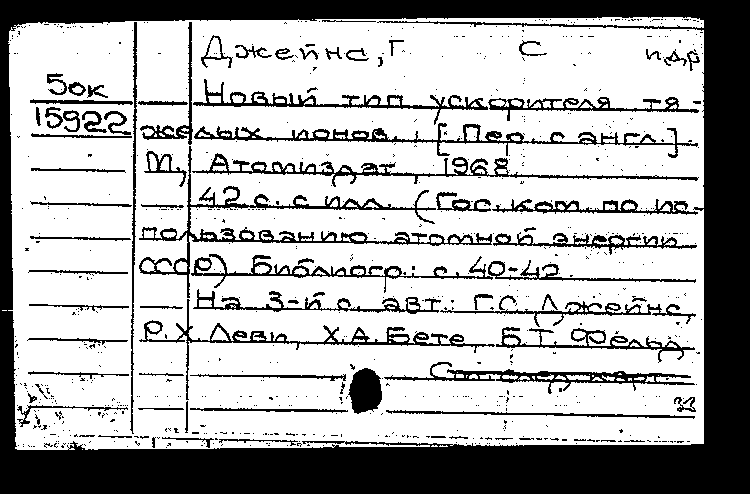 Джейнс, Г С и др
5ок
Новый тип ускорителя тя-
15922
желых ионов. [Пер. с англ.].
М., Атомиздат, 1968
42 с. с илл. (Гос. ком. по ис-
пользованию атомной энергии
СССР) Библиогр.: с. 40-42
На 3-й с. авт.: Г.С. Джейнс,
Р.Х. Леви, Х.А. Бете, Б.Т. Фельд
См. след. карт.